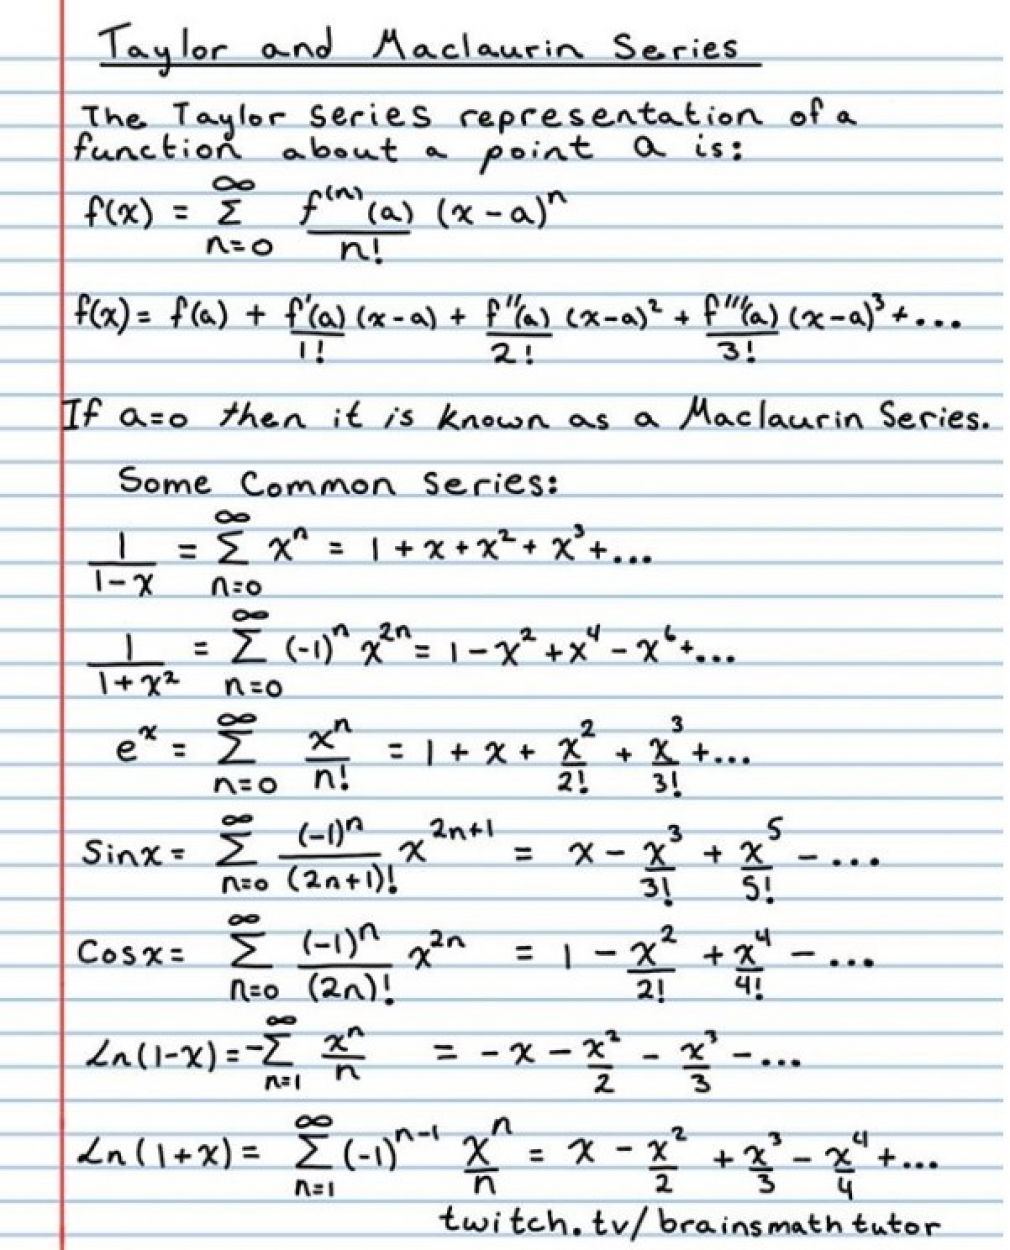 Taylor and Maclaurin Series
The Taylor series representation of a
function about a point a is:
f(x) = ∞ Σ n=0 f⁽ⁿ⁾(a)/n! (x-a)ⁿ
f(x) = f(a) + f'(a)/1! (x-a) + f''(a)/2! (x-a)² + f'''(a)/3! (x-a)³ + ...
If a=0 then it is known as a Maclaurin Series.
Some Common Series:
1/(1-x) = ∞ Σ n=0 xⁿ = 1 + x + x² + x³ + ...
1/(1+x²) = ∞ Σ n=0 (-1)ⁿ x²ⁿ = 1 - x² + x⁴ - x⁶ + ...
eˣ = ∞ Σ n=0 xⁿ/n! = 1 + x + x²/2! + x³/3! + ...
Sinx = ∞ Σ n=0 (-1)ⁿ/(2n+1)! x²ⁿ⁺¹ = x - x³/3! + x⁵/5! - ...
Cosx = ∞ Σ n=0 (-1)ⁿ/(2n)! x²ⁿ = 1 - x²/2! + x⁴/4! - ...
Ln(1-x) = - ∞ Σ n=1 xⁿ/n = -x - x²/2 - x³/3 - ...
Ln(1+x) = ∞ Σ n=1 (-1)ⁿ⁻¹ xⁿ/n = x - x²/2 + x³/3 - x⁴/4 + ...
twitch.tv/brainsmathtutor